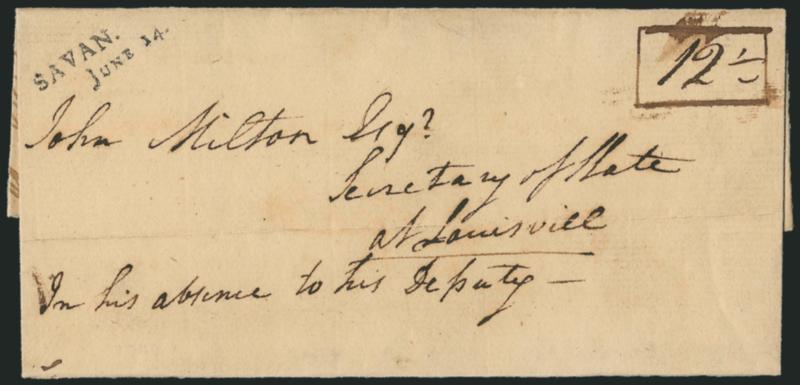 SAVAN.
JUNE 14.
12½
John Milton Esqr
Secretary of State
at Louisvill
In his absence to his Deputy —